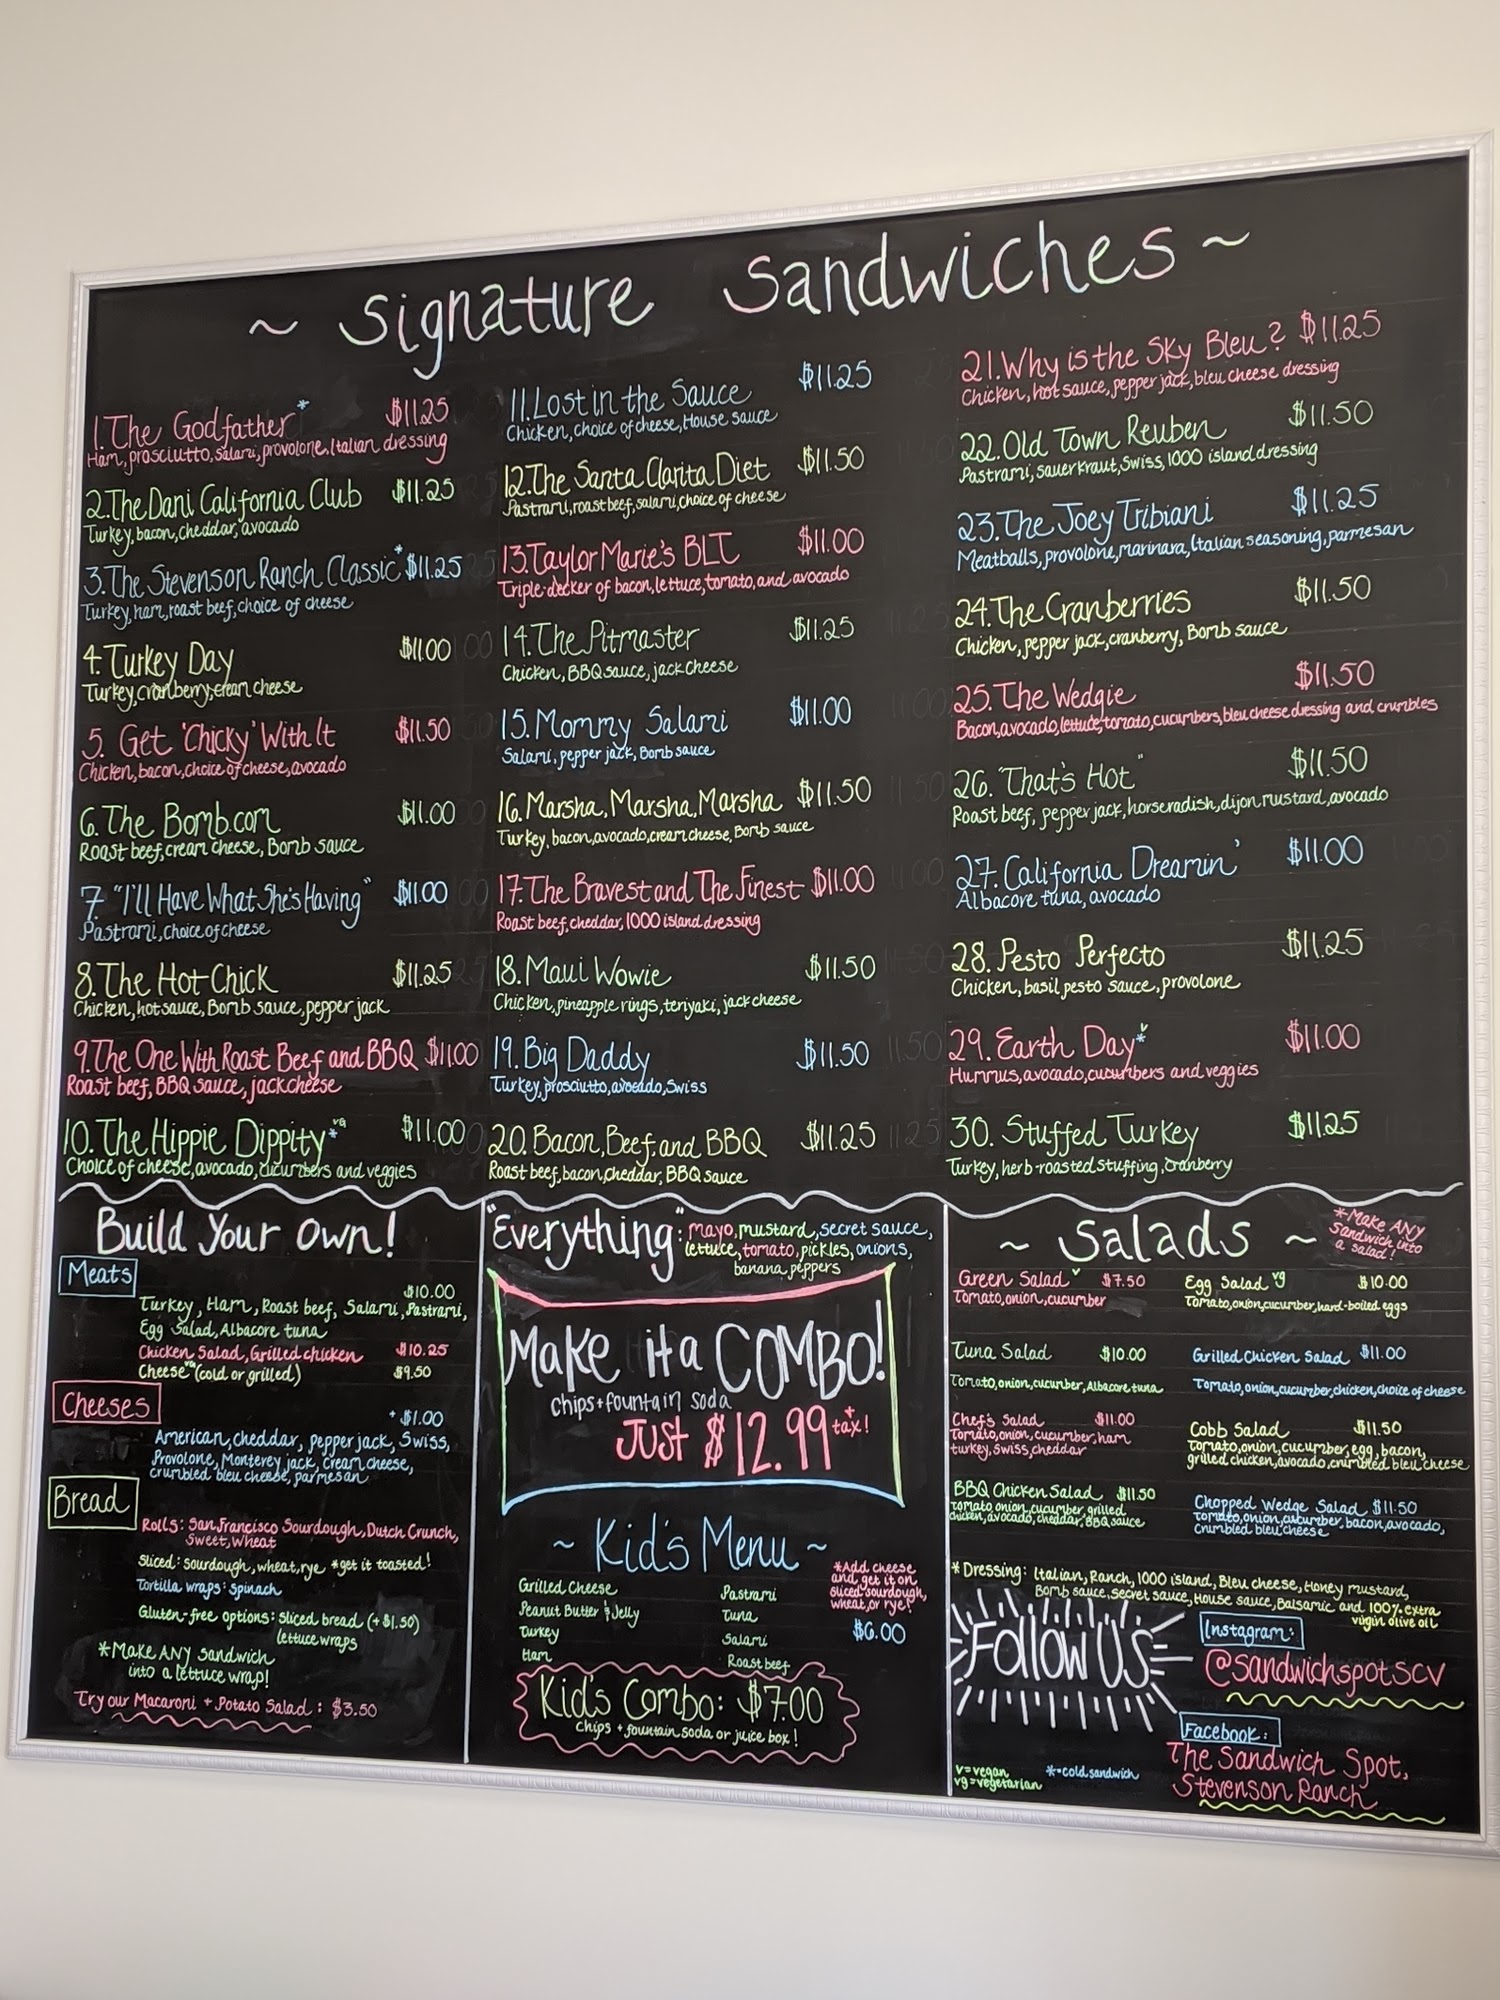 ~ Signature Sandwiches ~
1. The Godfather* $11.25
Ham, prosciutto, salami, provolone, Italian dressing
2. The Dani California Club $11.25
Turkey, bacon, cheddar, avocado
3. The Stevenson Ranch Classic* $11.25
Turkey, ham, roast beef, choice of cheese
4. Turkey Day $11.00
Turkey, cranberry, cream cheese
5. Get 'Chicky' With It $11.50
Chicken, bacon, choice of cheese, avocado
6. The Bomb.com $11.00
Roast beef, cream cheese, Bomb sauce
7. "I'll Have What She's Having" $11.00
Pastrami, choice of cheese
8. The Hot Chick $11.25
Chicken, hot sauce, Bomb sauce, pepper jack
9. The One With Roast Beef and BBQ $11.00
Roast beef, BBQ sauce, jack cheese
10. The Hippie Dippity* vg $11.00
Choice of cheese, avocado, cucumbers and veggies
11. Lost in the Sauce $11.25
Chicken, choice of cheese, House sauce
12. The Santa Clarita Diet $11.50
Pastrami, roast beef, salami, choice of cheese
13. Taylor Marie's BLT $11.00
Triple-decker of bacon, lettuce, tomato, and avocado
14. The Pitmaster $11.25
Chicken, BBQ sauce, jack cheese
15. Mommy Salami $11.00
Salami, pepper jack, Bomb sauce
16. Marsha, Marsha, Marsha $11.50
Turkey, bacon, avocado, cream cheese, Bomb sauce
17. The Bravest and The Finest $11.00
Roast beef, cheddar, 1000 island dressing
18. Maui Wowie $11.50
Chicken, pineapple rings, teriyaki, jack cheese
19. Big Daddy $11.50
Turkey, prosciutto, avocado, Swiss
20. Bacon, Beef, and BBQ $11.25
Roast beef, bacon, cheddar, BBQ sauce
21. Why is the Sky Bleu? $11.25
Chicken, hot sauce, pepper jack, bleu cheese dressing
22. Old Town Reuben $11.50
Pastrami, sauerkraut, Swiss, 1000 island dressing
23. The Joey Tribiani $11.25
Meatballs, provolone, marinara, Italian seasoning, parmesan
24. The Cranberries $11.50
Chicken, pepper jack, cranberry, Bomb sauce
25. The Wedgie $11.50
Bacon, avocado, lettuce, tomato, cucumbers, bleu cheese dressing and crumbles
26. "That's Hot" $11.50
Roast beef, pepper jack, horseradish, dijon mustard, avocado
27. California Dreamin' $11.00
Albacore tuna, avocado
28. Pesto Perfecto $11.25
Chicken, basil pesto sauce, provolone
29. Earth Day* v $11.00
Hummus, avocado, cucumbers and veggies
30. Stuffed Turkey $11.25
Turkey, herb-roasted stuffing, cranberry
Build Your Own!
Meats
$10.00
Turkey, Ham, Roast beef, Salami, Pastrami,
Egg Salad, Albacore tuna
Chicken Salad, Grilled chicken $10.25
Cheese vg (cold or grilled) $9.50
Cheeses
+$1.00
American, cheddar, pepper jack, Swiss,
Provolone, Monterey jack, cream cheese,
crumbled bleu cheese, parmesan
Bread
Rolls: San Francisco Sourdough, Dutch Crunch,
Sweet, Wheat
Sliced: sourdough, wheat, rye *get it toasted!
Tortilla wraps: spinach
Gluten-free options: sliced bread (+$1.50)
lettuce wraps
*Make ANY sandwich
into a lettuce wrap!
Try our Macaroni + Potato Salad: $3.50
"Everything": mayo, mustard, secret sauce,
lettuce, tomato, pickles, onions,
banana peppers
Make it a COMBO!
chips + fountain soda
Just $12.99 + tax!
~ Kid's Menu ~
Grilled Cheese
Peanut Butter & Jelly
Turkey
Ham
Pastrami
Tuna
Salami
Roast beef
*Add cheese
and get it on
sliced sourdough,
wheat, or rye!
$6.00
Kid's Combo: $7.00
chips + fountain soda or juice box!
~ Salads ~
*Make ANY
sandwich into
a salad!
Green Salad v $7.50
Tomato, onion, cucumber
Egg Salad vg $10.00
Tomato, onion, cucumber, hard-boiled eggs
Tuna Salad $10.00
Tomato, onion, cucumber, Albacore tuna
Grilled Chicken Salad $11.00
Tomato, onion, cucumber, chicken, choice of cheese
Chef's Salad $11.00
Tomato, onion, cucumber, ham
turkey, swiss, cheddar
Cobb Salad $11.50
Tomato, onion, cucumber, egg, bacon,
grilled chicken, avocado, crumbled bleu cheese
BBQ Chicken Salad $11.50
Tomato onion, cucumber, grilled
chicken, avocado, cheddar, BBQ sauce
Chopped Wedge Salad $11.50
Tomato, onion, cucumber, bacon, avocado,
crumbled bleu cheese
*Dressing: Italian, Ranch, 1000 island, Bleu cheese, Honey mustard,
Bomb sauce, Secret sauce, House sauce, Balsamic and 100% extra
virgin olive oil
Follow US
Instagram:
@sandwichspotscv
Facebook:
The Sandwich Spot,
Stevenson Ranch
v=vegan
vg=vegetarian
*=cold sandwich